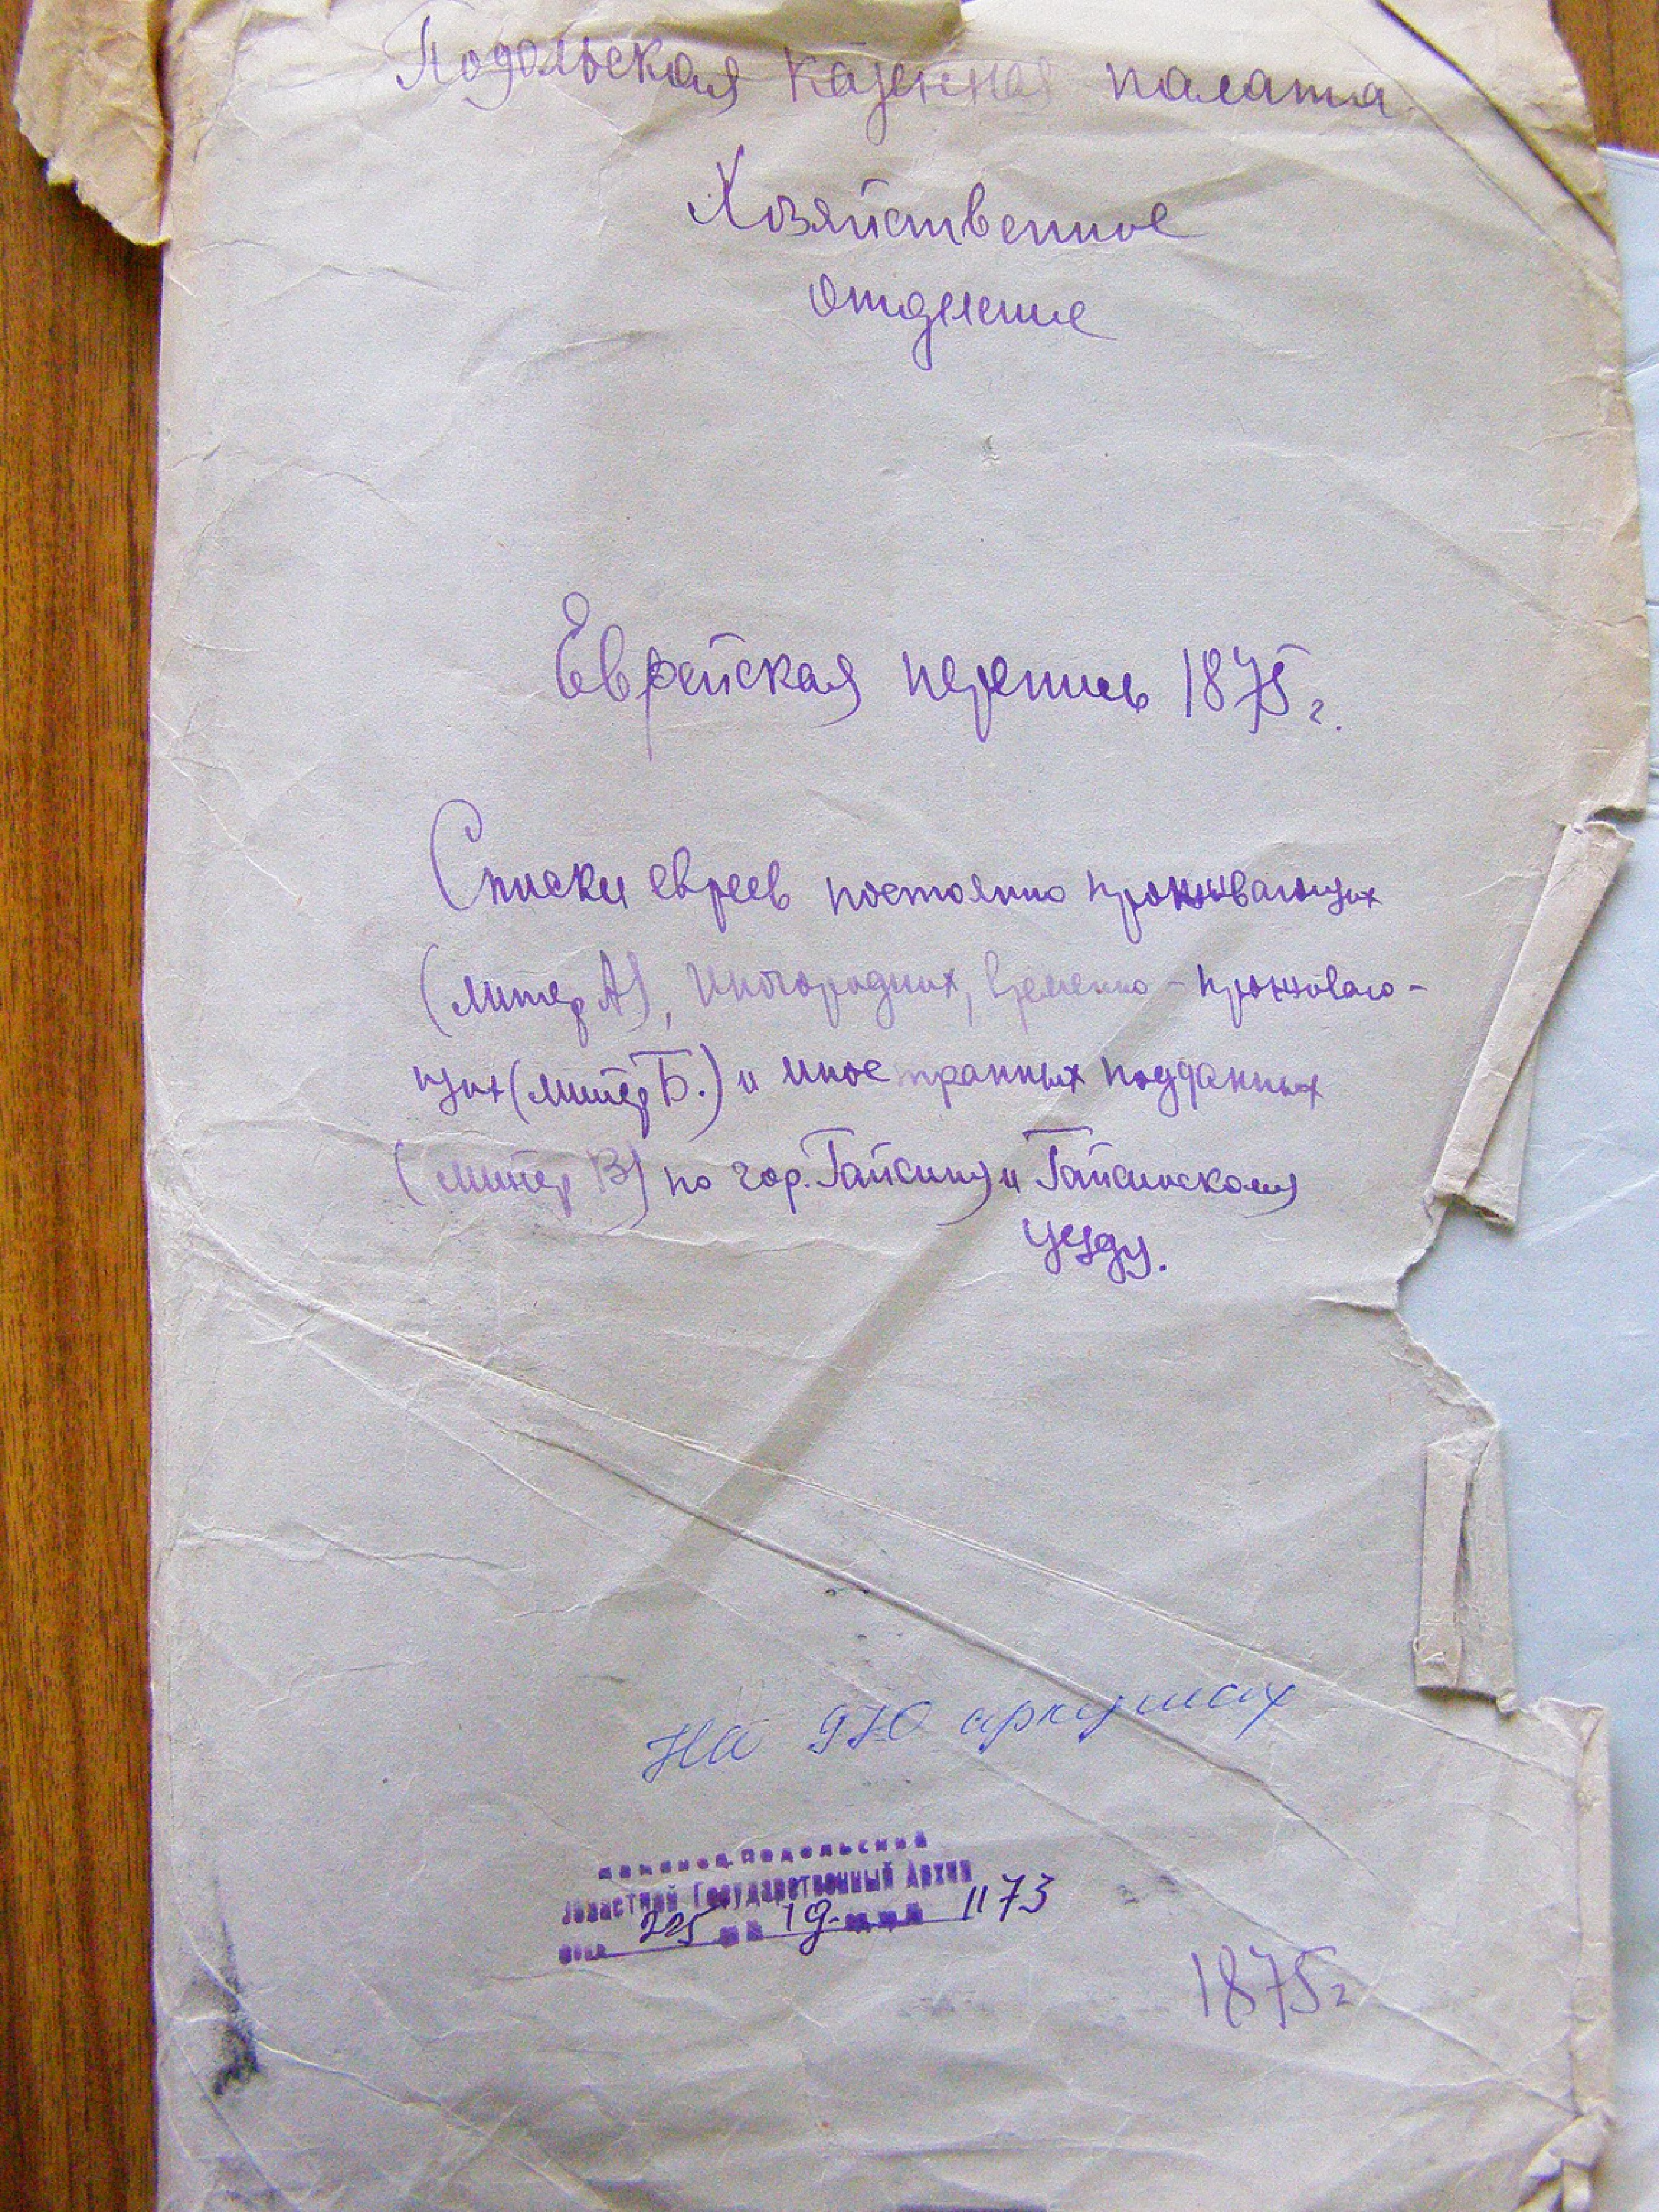 Подольская казенная палата
Хозяйственное
отделение
Еврейская перепись 1875 г.
Списки евреев постоянно проживающих
(литер А), иногородних, временно - проживаю-
щих (литер Б.) и иностранных подданных
(литер В) по гор. Гайсину и Гайсинскому
уезду.
На 970 аркушах
Каменец-Подольский
Областной Государственный Архив
фонд 225 оп № 19 ед. хр. № 1173
1875 г